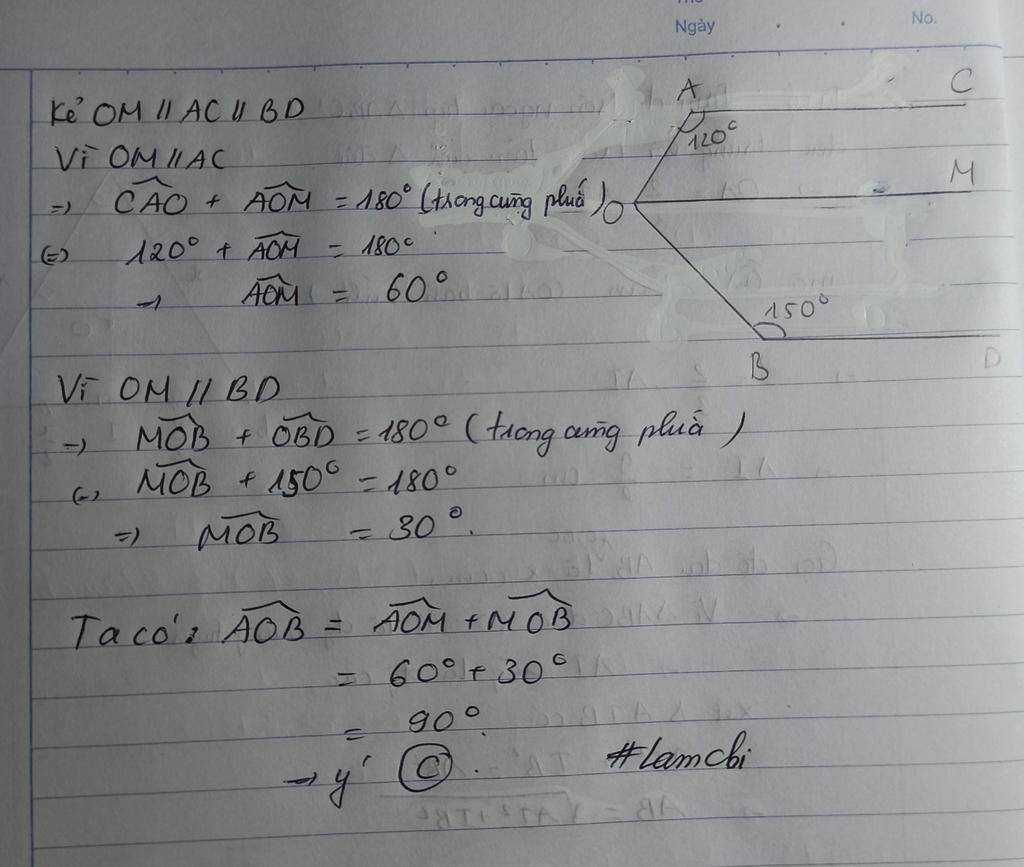 Ngày
No.
Kẻ OM // AC // BD
Vì OM // AC
=> CÂO + AÔM = 180° (trong cùng phiá)
(=) 120° + AÔM = 180°
→ AÔM = 60°
Vì OM // BD
→ MÔB + OB̂D = 180° (trong cùng phiá)
(=) MÔB + 150° = 180°
=) MÔB = 30°.
Ta có: AÔB = AÔM + MÔB
= 60° + 30°
= 90°.
→ ý C.
#lamchi
A
C
120°
O
M
150°
B
D